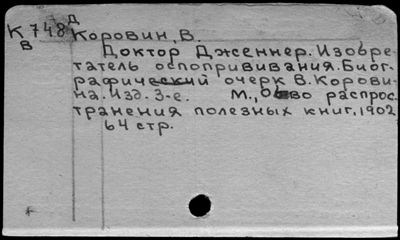 Д
К 748 Коровин, В.
В
Доктор Дженнер. Изобре-
татель оспопрививания. Биог-
рафический очерк В. Корови-
на. Изд. 3-е. М., О-во распрос.
транения полезных книг, 1902
64 стр.